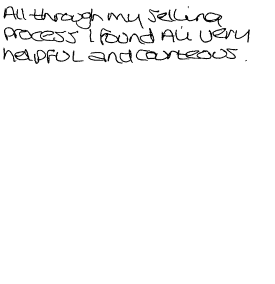 All through my selling
process I found Ali very
helpful and courteous.